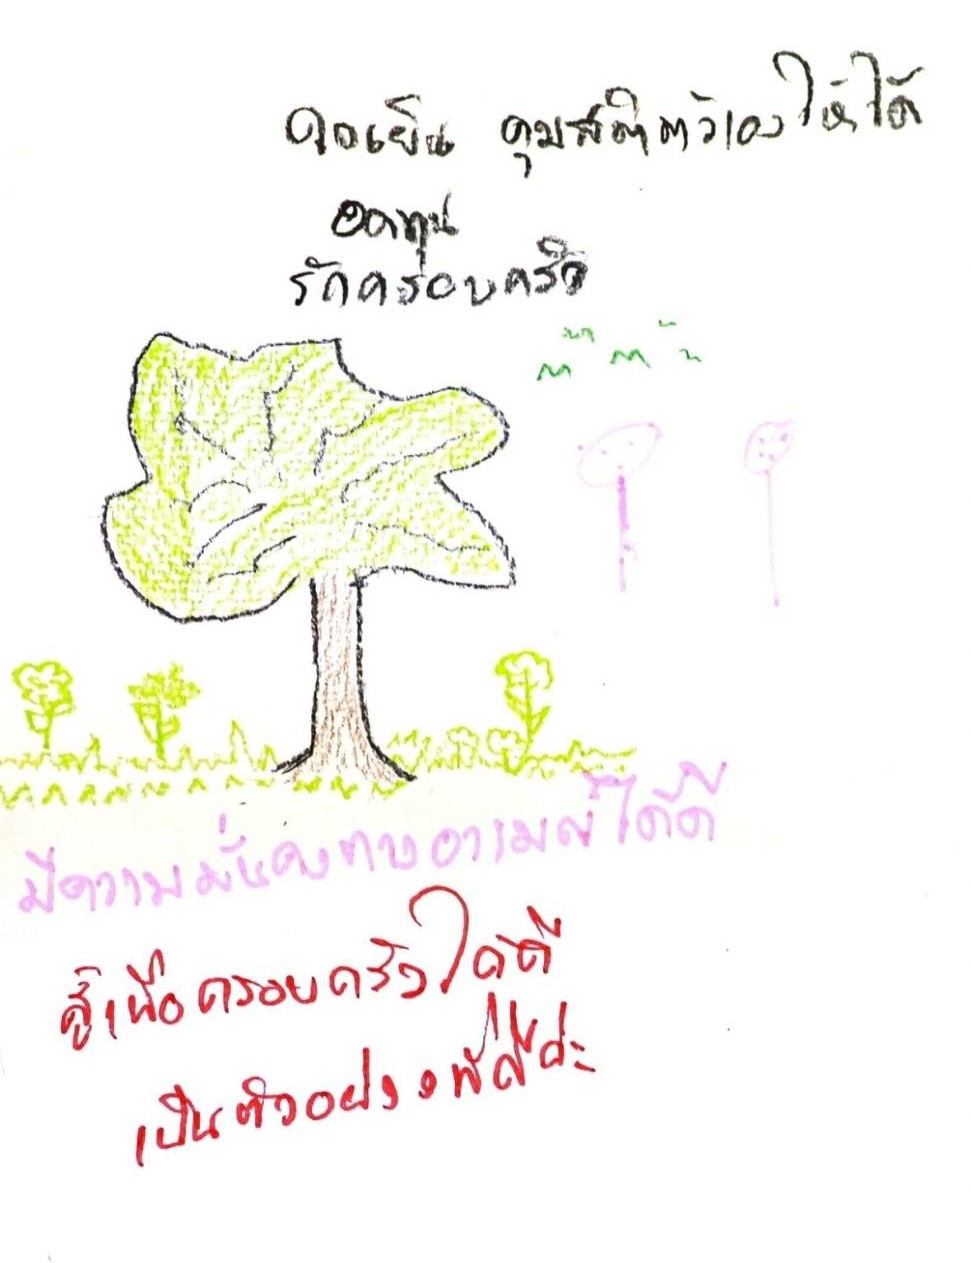 ใจเย็น คุมสติตัวเองให้ได้
อดทน
รักครอบครัว
มีความมั่นคงทางอารมณ์ได้ดี
สู้เพื่อครอบครัวได้ดี
เป็นตัวอย่าง